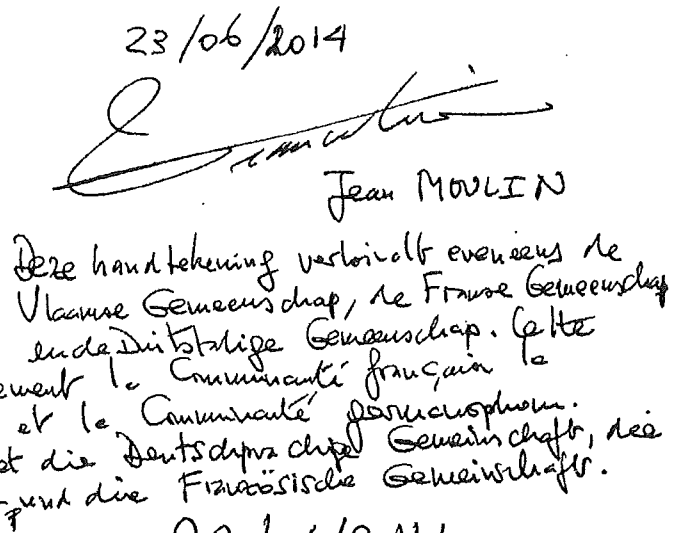 23/06/2014
Jean MOULIN
Deze handtekening verbindt eveneens de
Vlaamse Gemeenschap, de Franse Gemeenschap
en de Duitstalige Gemeenschap. Cette
la Communauté française la
et la Communauté germanophone.
die Deutschsprachige Gemeinschaft, die
und die Französische Gemeinschaft.